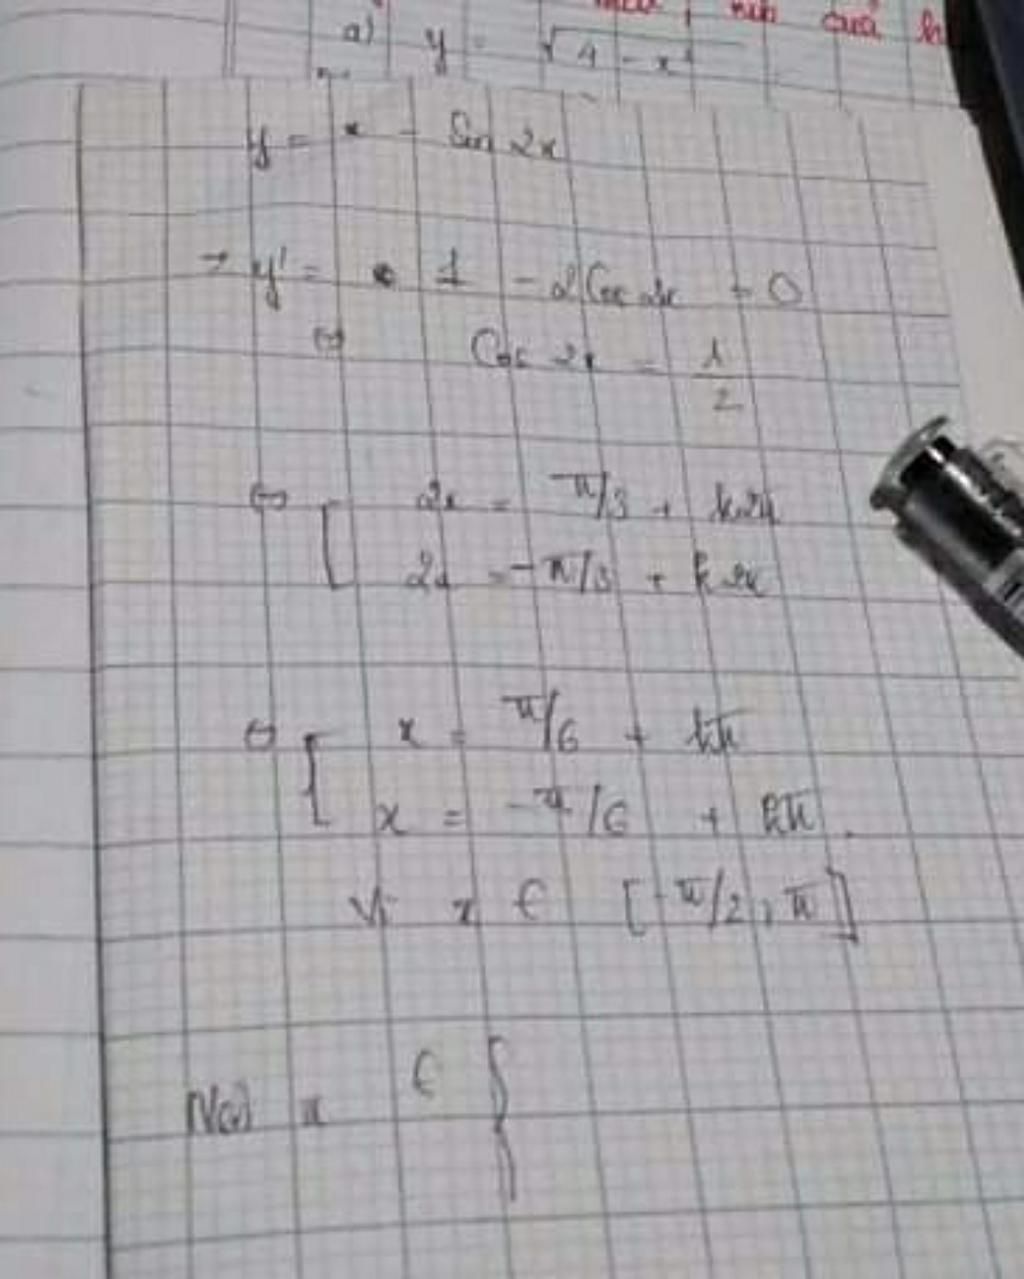 của
a) y = √4 - x²
y = x - Sin 2x
→ y' = 1 - 2Cos 2x = 0
⇔ Cos 2x = 1/2
⇔ [ 2x = π/3 + k2π
2x = -π/3 + k2π
⇔ [ x = π/6 + kπ
x = -π/6 + kπ.
Vì x ∈ [-π/2, π]
Nên x ∈ {